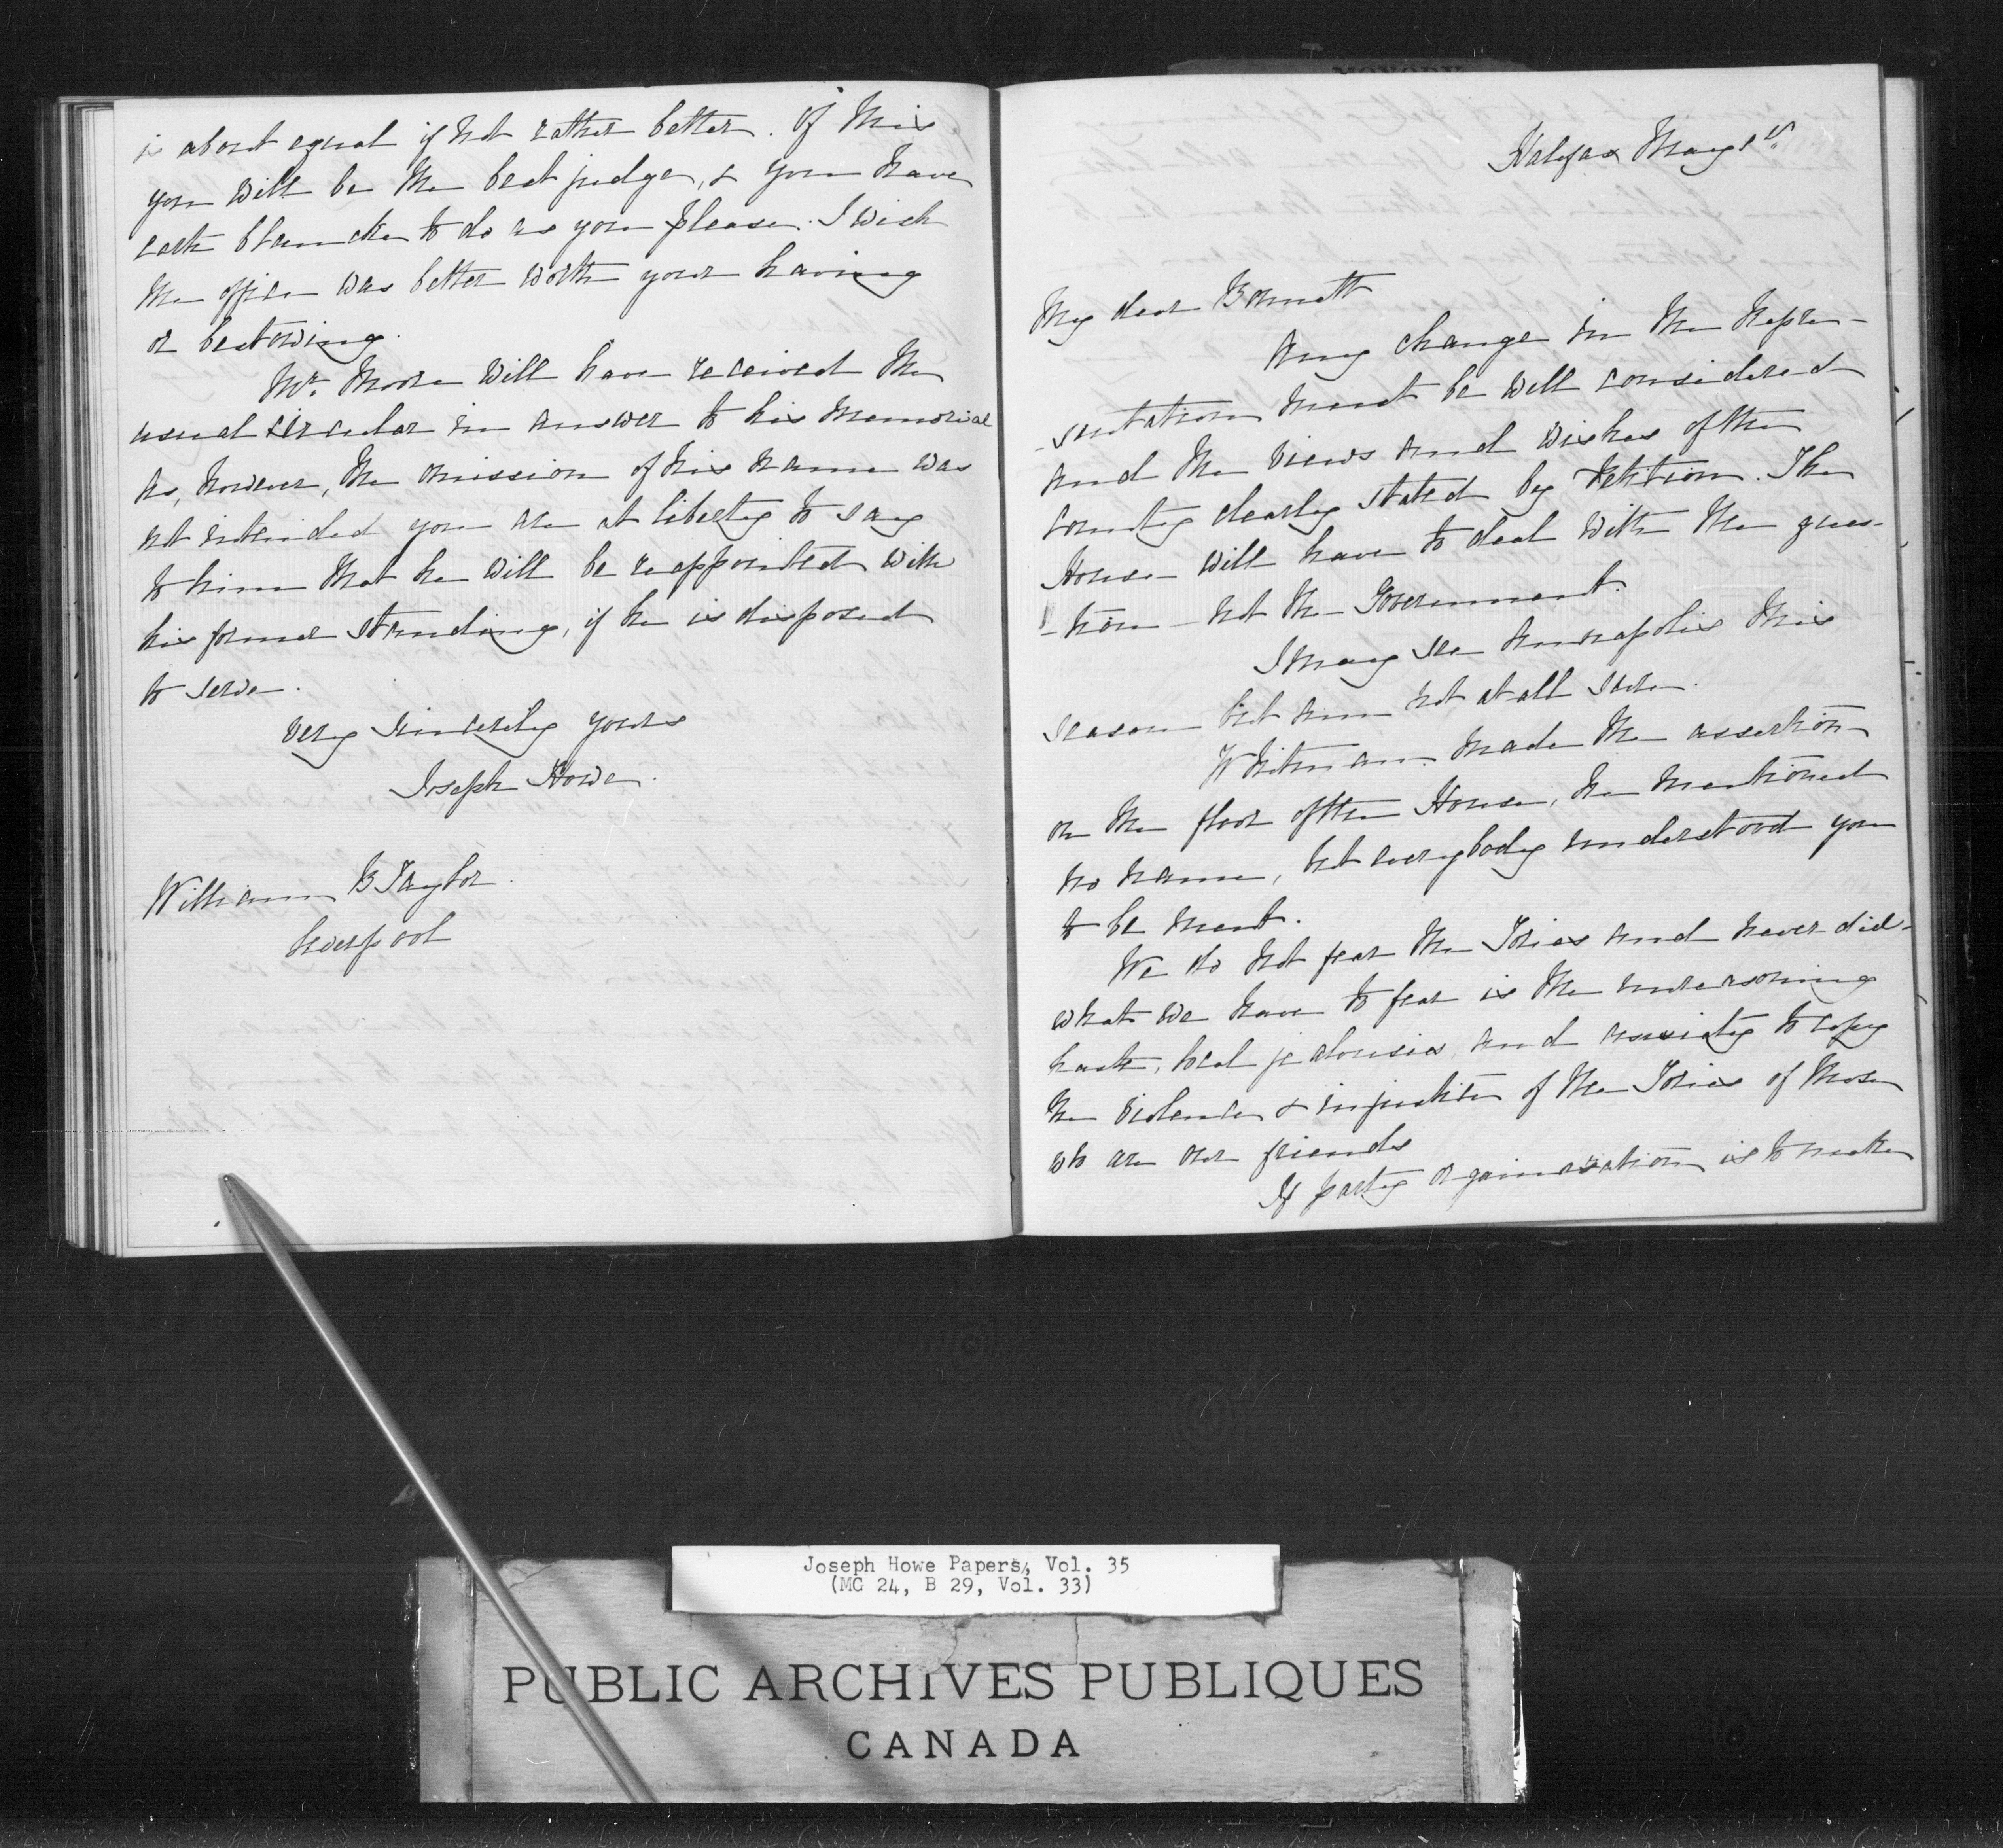 is about equal if not rather better. Of this
you will be the best judge, & you have
carte blanche to do as you please. I wish
the office was better worth your having
or bestowing.
Mr. Moore will have received the
usual circular in answer to his memorial
As, however, the omission of his name was
not intended you are at liberty to say
to him that he will be reappointed with
his former standing, if he is disposed
to serve.
Very Sincerely yours
Joseph Howe.
William B Taylor.
Liverpool
Halifax May 1st
My dear Bonnett
Any change in the Repre-
-sentation must be well considered
and the views and wishes of the
County clearly stated by Petition. The
House will have to deal with the ques-
-tion - not the Government.
I may see Annapolis this
season but am not at all sure.
Whitman made the assertion
on the floor of the House, he mentioned
no name, but everybody understood you
to be meant.
We do not fear the Tories and never did.
what we have to fear is the unreasoning
haste, local jealousies and anxiety to copy
the violence & injustice of the Tories of those
who are our friends
If party organization is to make
Joseph Howe Papers, Vol. 35
(MC 24, B 29, Vol. 33)
PUBLIC ARCHIVES PUBLIQUES
CANADA